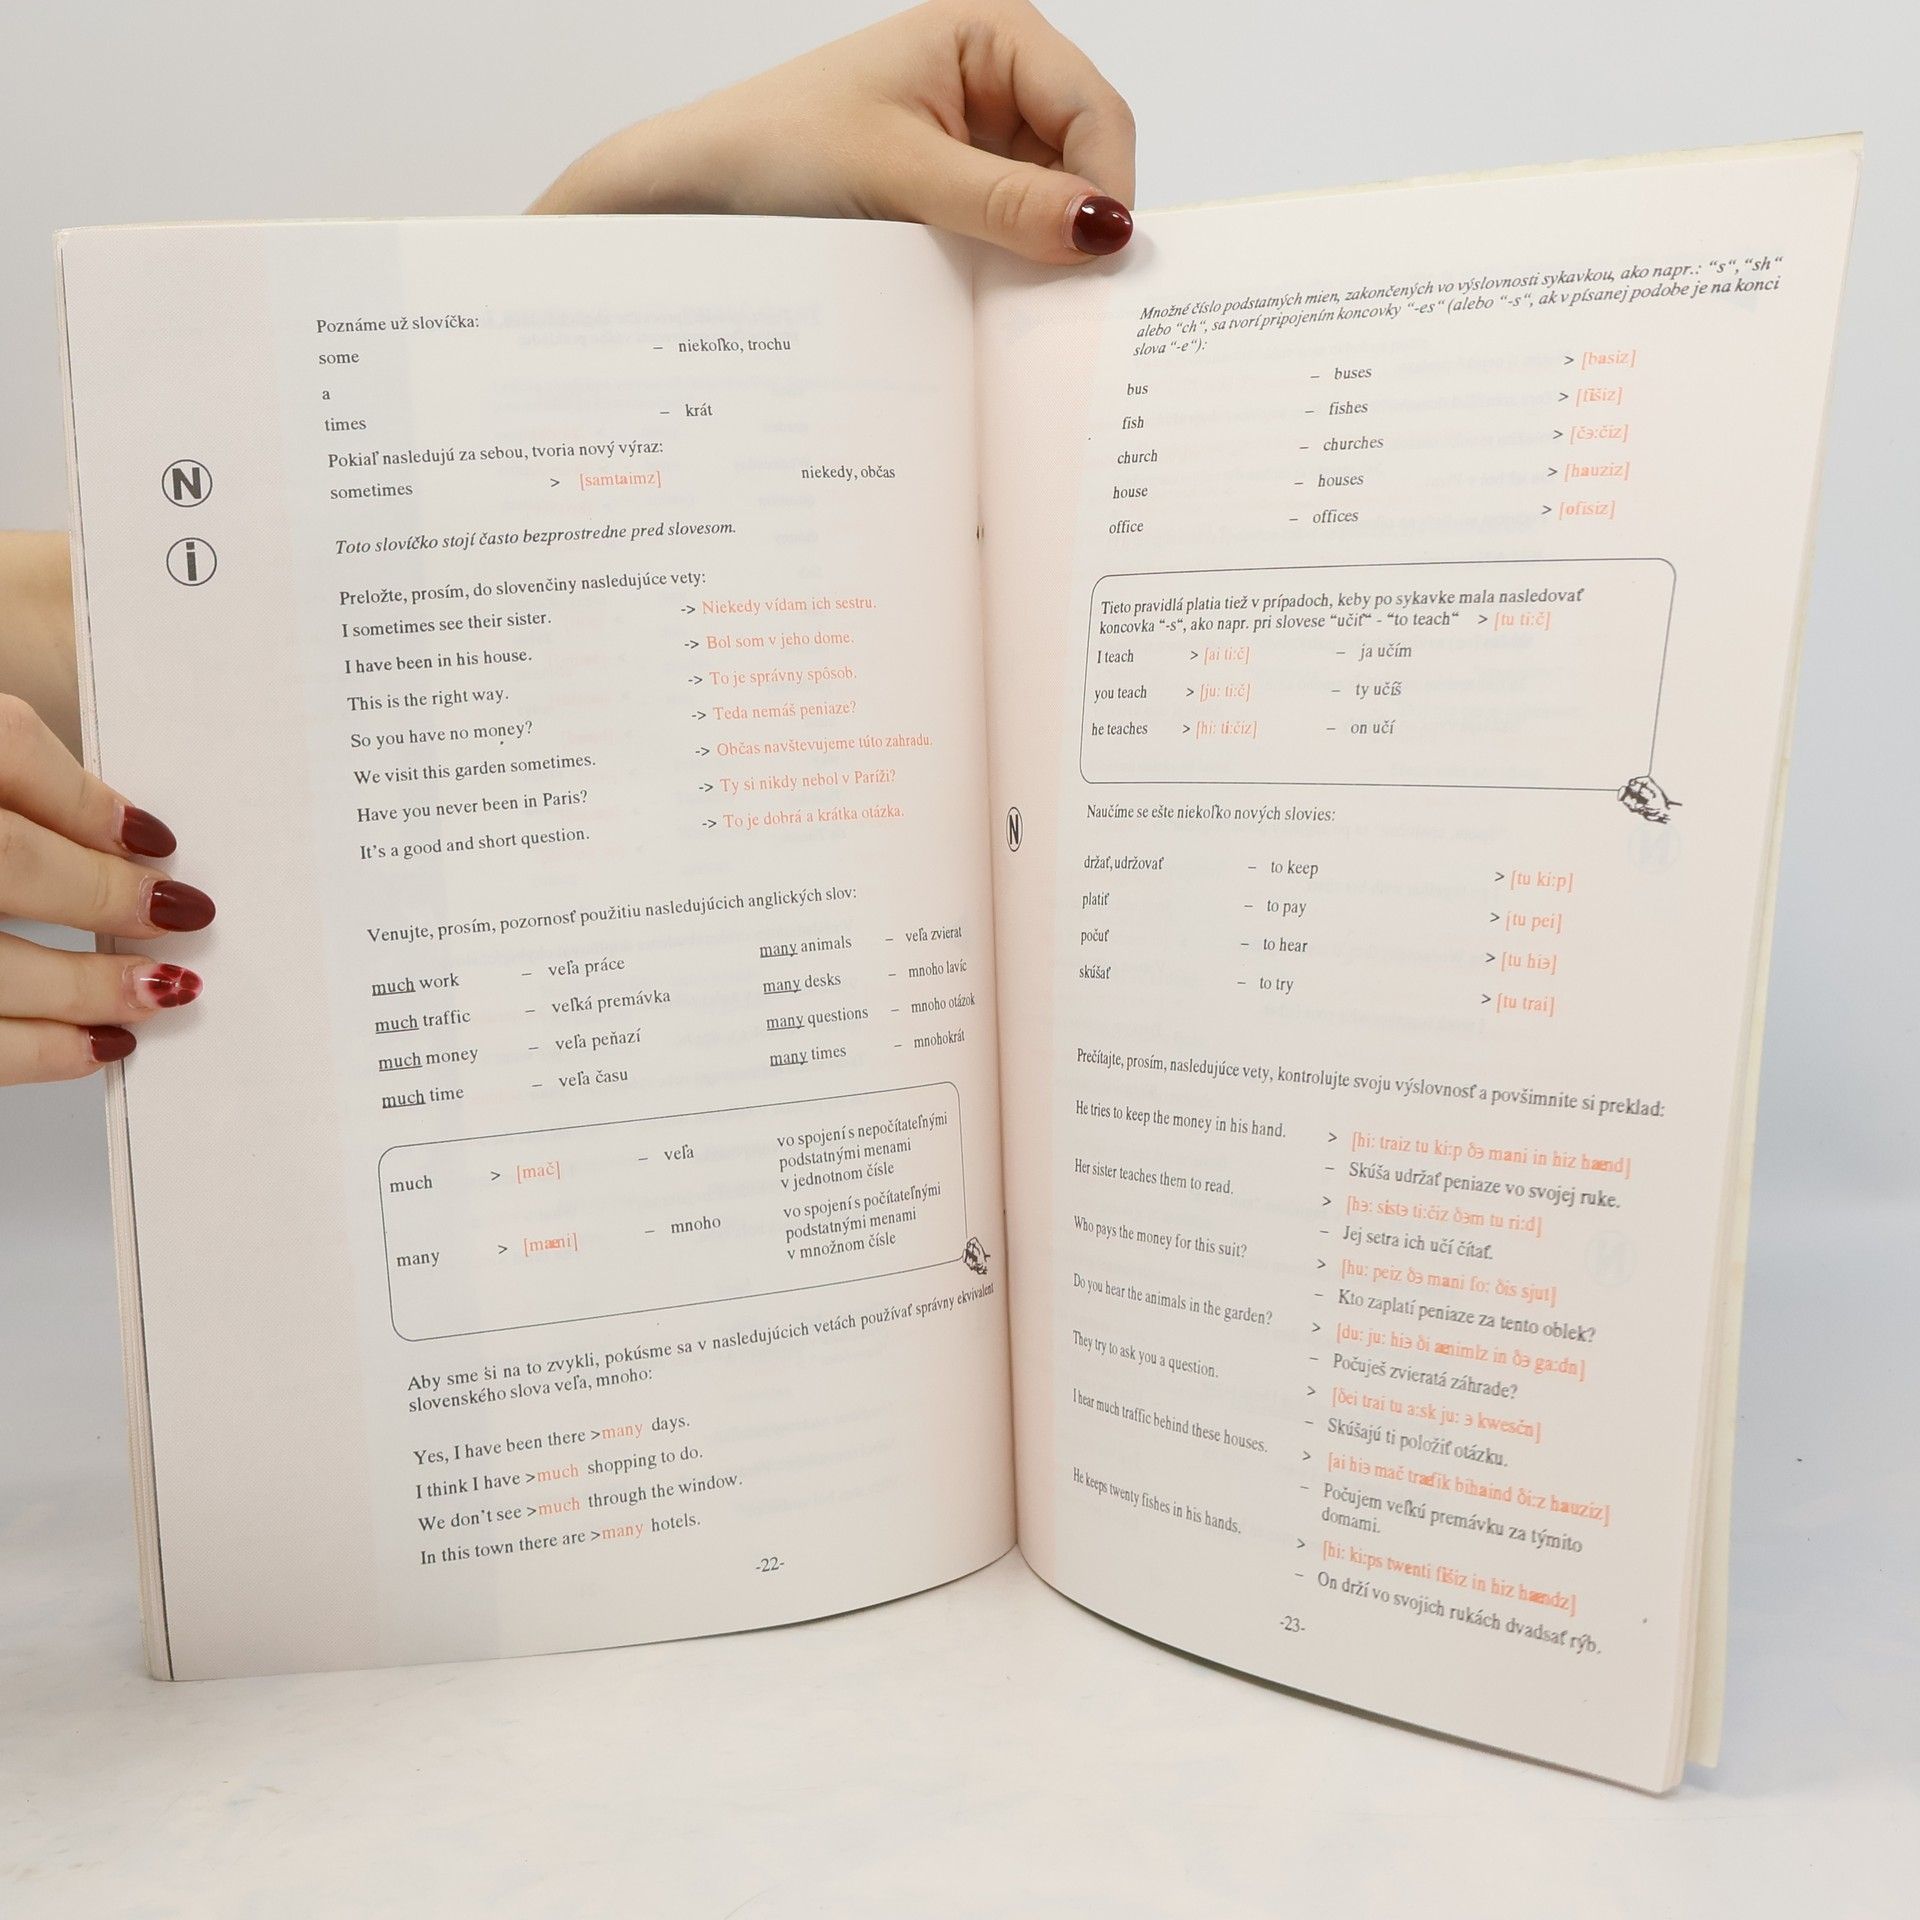 Poznáme už slovíčka:
some – niekoľko, trochu
a
times – krát
Pokiaľ nasledujú za sebou, tvoria nový výraz:
N
sometimes > [samtaimz] niekedy, občas
i
Toto slovíčko stojí často bezprostredne pred slovesom.
Preložte, prosím, do slovenčiny nasledujúce vety:
I sometimes see their sister. -> Niekedy vídam ich sestru.
I have been in his house. -> Bol som v jeho dome.
This is the right way. -> To je správny spôsob.
So you have no money? -> Teda nemáš peniaze?
We visit this garden sometimes. -> Občas navštevujeme túto zahradu.
Have you never been in Paris? -> Ty si nikdy nebol v Paríži?
It's a good and short question. -> To je dobrá a krátka otázka.
Venujte, prosím, pozornosť použitiu nasledujúcich anglických slov:
much work – veľa práce many animals – veľa zvierat
much traffic – veľká premávka many desks – mnoho lavíc
much money – veľa peňazí many questions – mnoho otázok
much time – veľa času many times – mnohokrát
much > [mač] – veľa vo spojení s nepočítateľnými
podstatnými menami
v jednotnom čísle
many > [mæni] – mnoho vo spojení s počítateľnými
podstatnými menami
v množnom čísle
Aby sme si na to zvykli, pokúsme sa v nasledujúcich vetách používať správny ekvivalent
slovenského slova veľa, mnoho:
Yes, I have been there >many days.
I think I have >much shopping to do.
We don't see >much through the window.
In this town there are >many hotels.
-22-
Množné číslo podstatných mien, zakončených vo výslovnosti sykavkou, ako napr.: “s“, “sh“
alebo “ch“, sa tvorí pripojením koncovky “-es“ (alebo “-s“, ak v písanej podobe je na konci
slova “-e“):
bus – buses > [basiz]
fish – fishes > [fišiz]
church – churches > [čɘ:čiz]
house – houses > [hauziz]
office – offices > [ofisiz]
Tieto pravidlá platia tiež v prípadoch, keby po sykavke mala nasledovať
koncovka “-s“, ako napr. pri slovese “učiť“ - “to teach“ > [tu ti:č]
I teach > [ai ti:č] – ja učím
you teach > [ju: ti:č] – ty učíš
he teaches > [hi: ti:čiz] – on učí
Naučíme se ešte niekoľko nových slovies:
N
držať, udržovať – to keep > [tu ki:p]
platiť – to pay > [tu pei]
počuť – to hear > [tu hiɘ]
skúšať – to try > [tu trai]
Prečítajte, prosím, nasledujúce vety, kontrolujte svoju výslovnosť a povšimnite si preklad:
He tries to keep the money in his hand. > [hi: traiz tu ki:p ðɘ mani in hiz hænd]
– Skúša udržať peniaze vo svojej ruke.
Her sister teaches them to read. > [hɘ: sistɘ ti:čiz ðɘm tu ri:d]
– Jej setra ich učí čítať.
Who pays the money for this suit? > [hu: peiz ðɘ mani fo: ðis sjut]
– Kto zaplatí peniaze za tento oblek?
Do you hear the animals in the garden? > [du: ju: hiɘ ði ænimlz in ðɘ ga:dn]
– Počuješ zvieratá záhrade?
They try to ask you a question. > [ðei trai tu a:sk ju: ɘ kwesčn]
– Skúšajú ti položiť otázku.
I hear much traffic behind these houses. > [ai hiɘ mač træfik bihaind ði:z hauziz]
– Počujem veľkú premávku za týmito
domami.
He keeps twenty fishes in his hands. > [hi: ki:ps twenti fišiz in hiz hændz]
– On drží vo svojich rukách dvadsať rýb.
-23-